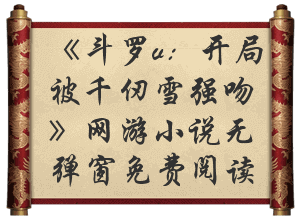 《斗罗u：开局
被千仞雪强吻
》网游小说无
弹窗免费阅读